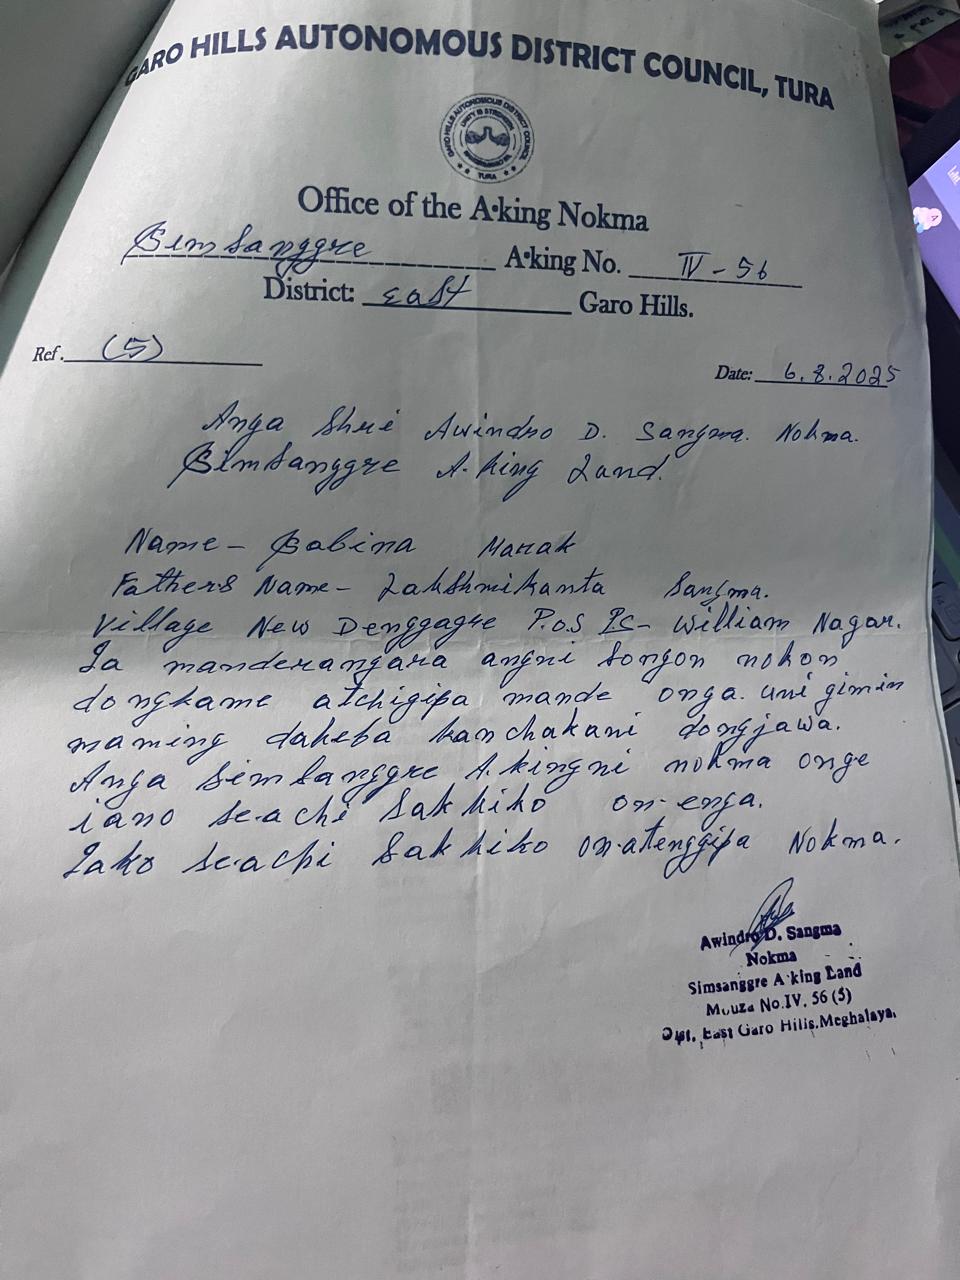 GARO HILLS AUTONOMOUS DISTRICT COUNCIL, TURA
GARO HILLS AUTONOMOUS DISTRICT COUNCIL
UNITY IS STRENGTH
TURA
Office of the A·king Nokma
Simsanggre A·king No. IV - 56
District: East Garo Hills.
Ref. (5)
Date: 6.8.2025
Anga Shri Awindro D. Sangma. Nokma.
Simsanggre A·king Land.
Name - Sabina Marak
Fathers Name - Lakshmikanta Sangma.
Village New Denggagre P.O.S Ps - William Nagar.
Ia manderangara angni songon nokon
dongkame atchigipa mande onga. uni gimin
maming dakeba kanchakani dongjawa.
Anga Simsanggre A.kingni nokma onge
iano se·achi sakkiko on·enga.
Iako se·achi sakkiko on·atenggipa Nokma.
Awindro D. Sangma
Nokma
Simsanggre A·king Land
Mouza No.IV, 56 (5)
Dist. East Garo Hills, Meghalaya.